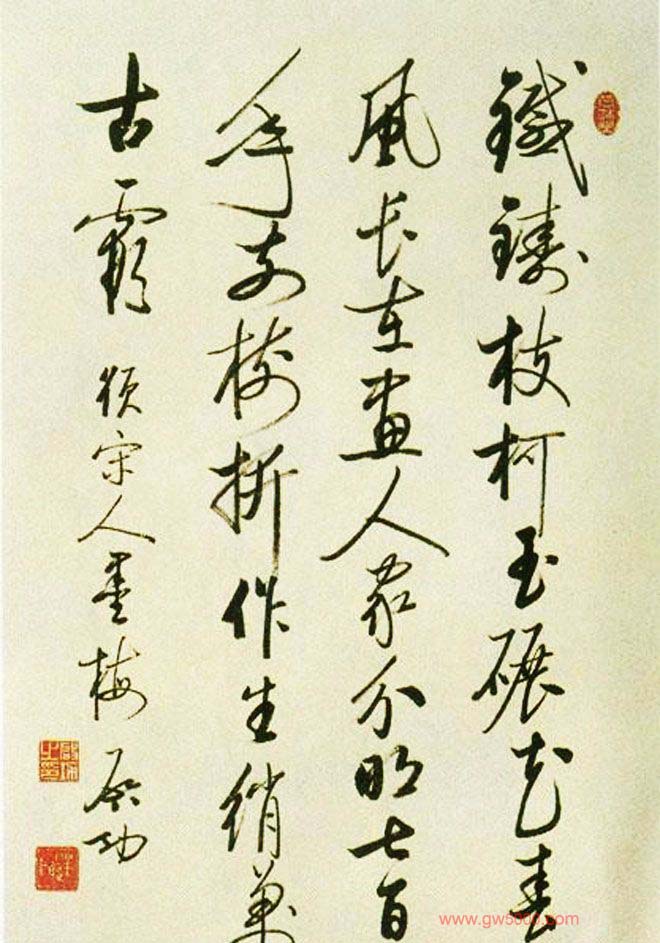 鐵鑄枝柯玉碾花春
風長在畫人家分明七百
年前樹折作生綃萬
古霞 題宋人墨梅 启功
www.gw5000.com